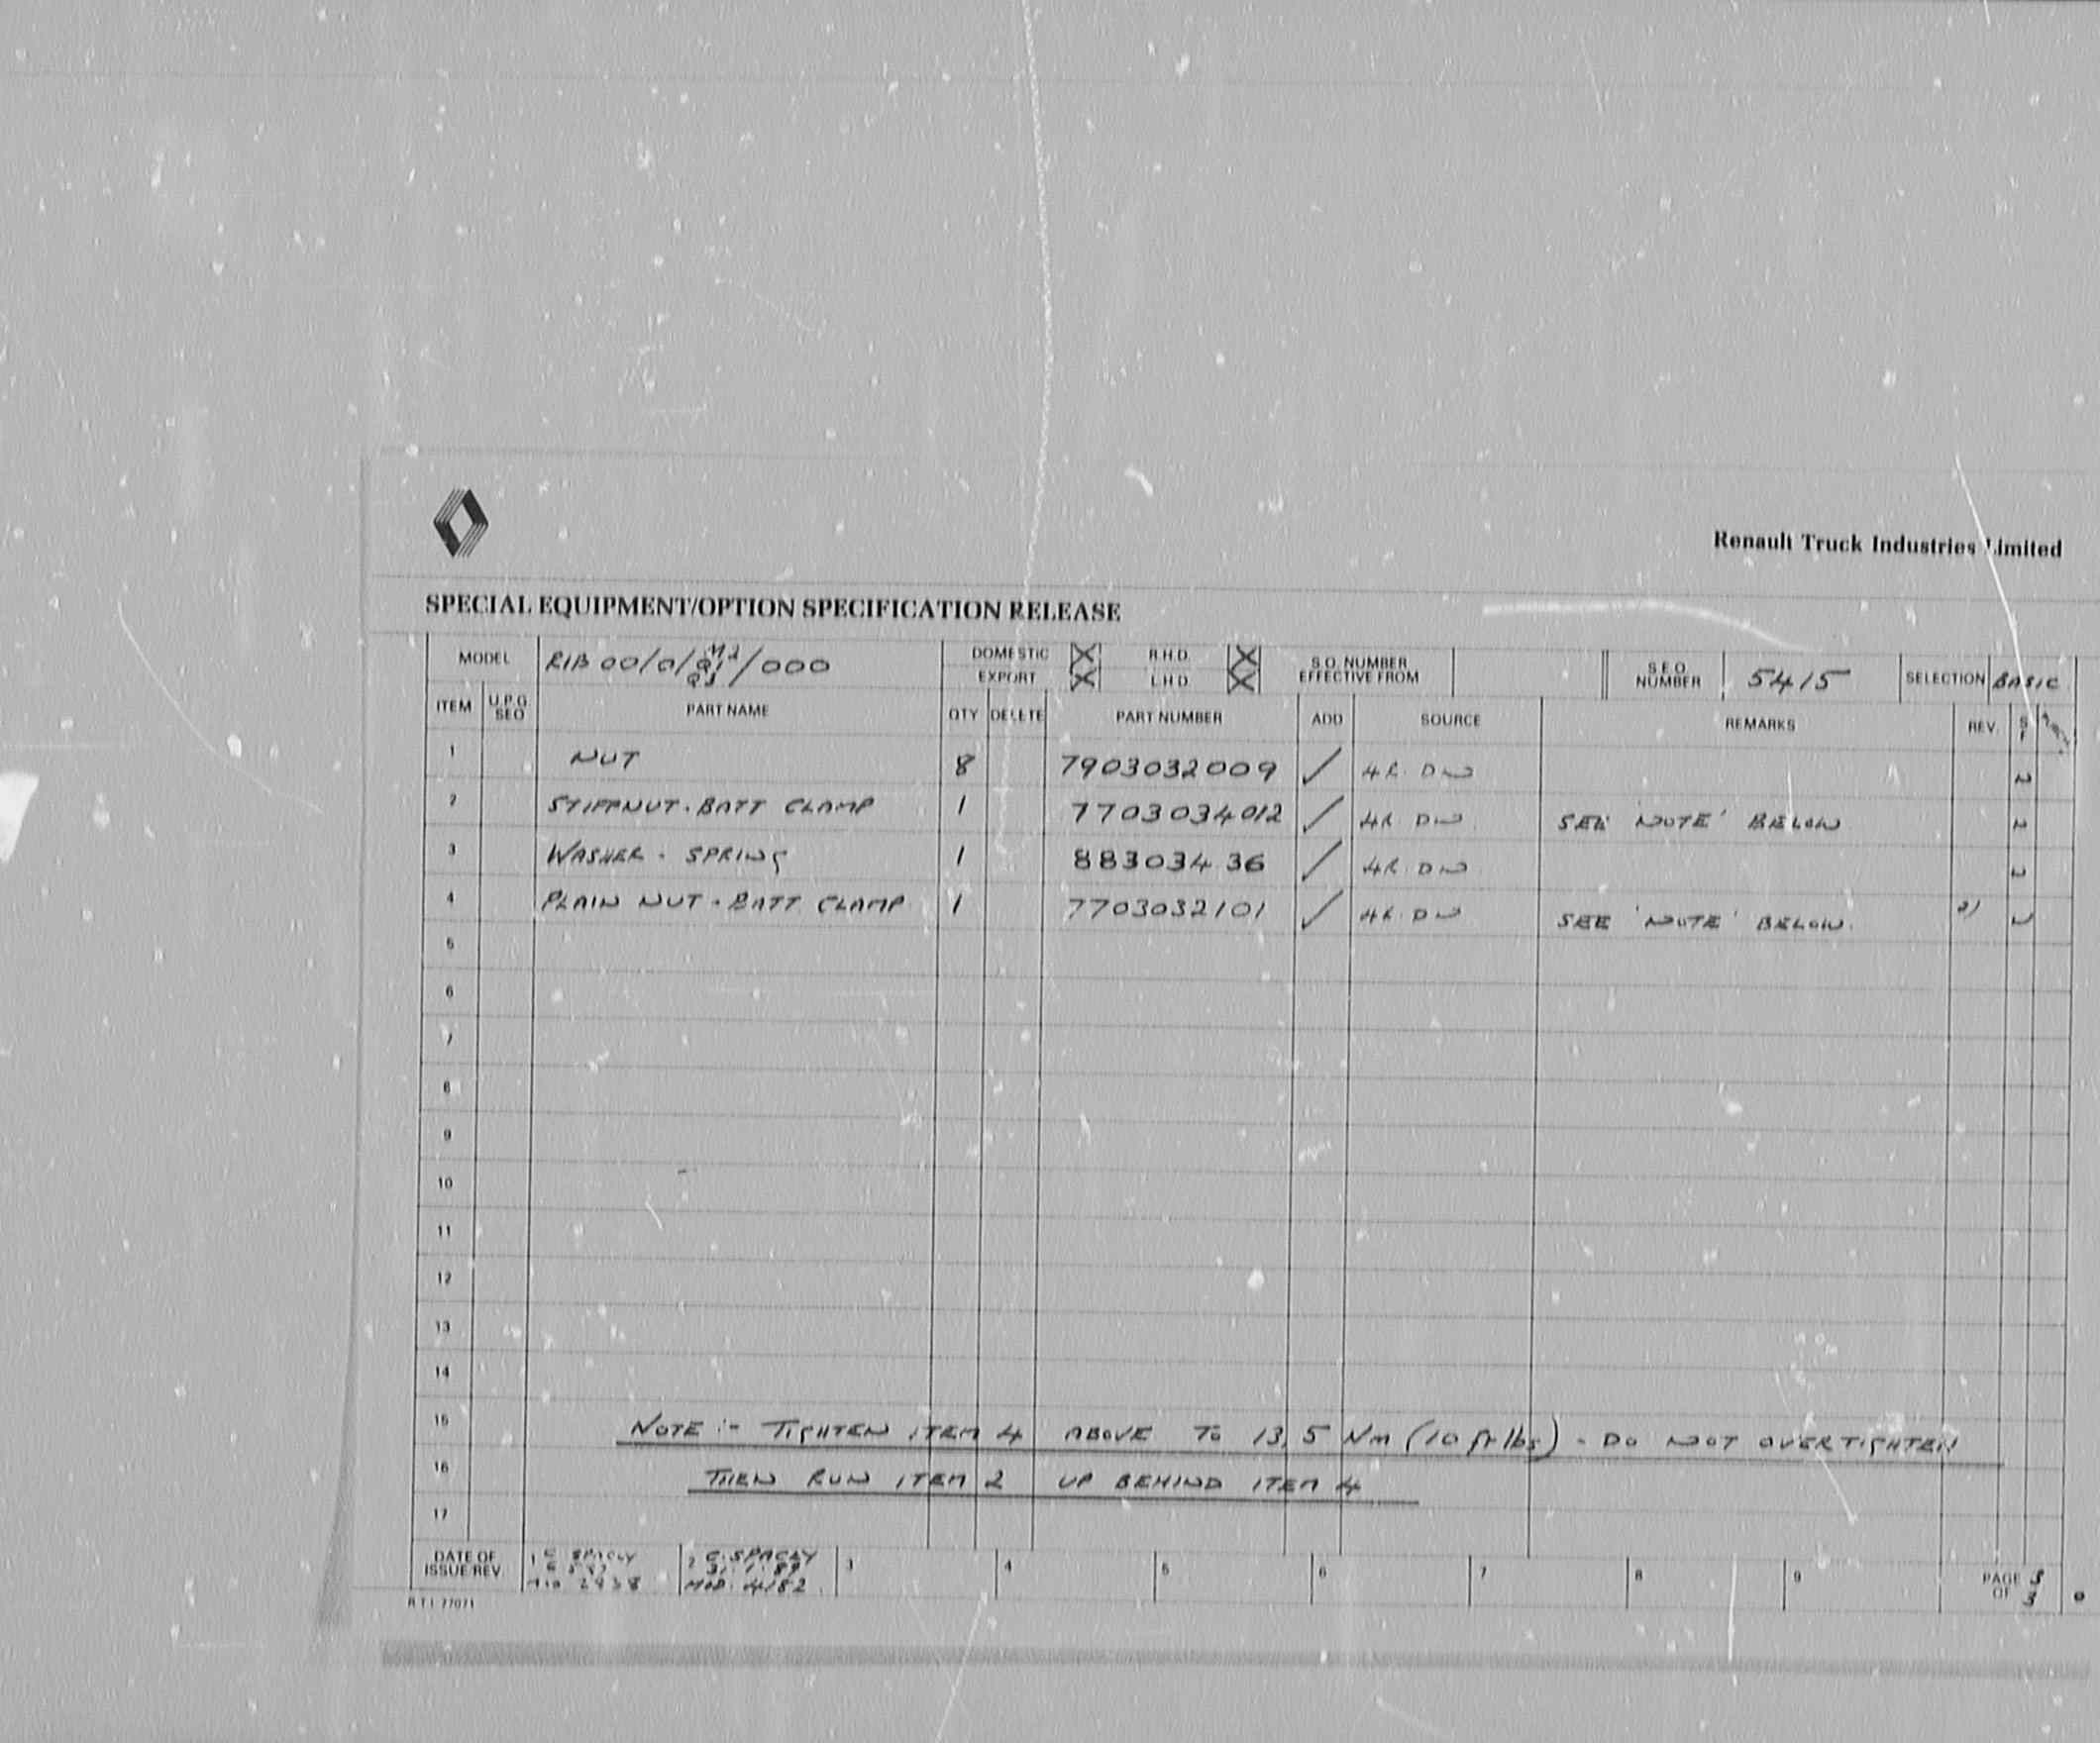 Renault Truck Industries Limited
SPECIAL EQUIPMENT/OPTION SPECIFICATION RELEASE
MODEL RIB 00/0/ /000 DOMESTIC X R.H.D. X S.O. NUMBER EFFECTIVE FROM S.E.O. NUMBER 5415 SELECTION BASIC
EXPORT X L.H.D. X
ITEM U.P.G. SEO PART NAME QTY DELETE PART NUMBER ADD SOURCE REMARKS REV.
1 NUT 8 7903032009 ✓ 4R. DW
2 STIFFNUT - BATT CLAMP 1 7703034012 ✓ 4R DW SEE 'NOTE' BELOW
3 WASHER - SPRING 1 883034 36 ✓ 4R. DW
4 PLAIN NUT - BATT CLAMP 1 7703032101 ✓ 4R. DW SEE 'NOTE' BELOW. 2)
5
6
7
8
9
10
11
12
13
14
15 NOTE :- TIGHTEN ITEM 4 ABOVE TO 13,5 Nm (10 ft lbs) - DO NOT OVERTIGHTEN
16 THEN RUN ITEM 2 UP BEHIND ITEM 4
17
DATE OF ISSUE/REV. 1 2 C. SPACEY 3 4 5 6 7 8 9 PAGE 3 OF 3
MOD 2938 MOD. 4182
R.T.I. 77071